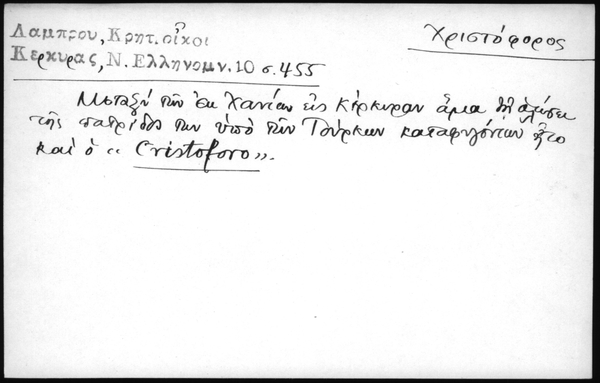 Χριστόφορος
Λαμπρου, Κρητ. οἶκοι
Κερκυρας, Ν. Ελληνομν. 10 σ. 455
Μεταξὺ τῶν ἐκ Χανίων εἰς Κέρκυραν ἅμα τῇ ἁλώσει
τῆς πατρίδος των ὑπὸ τῶν Τούρκων καταφυγόντων ἦτο
καὶ ὁ « Cristoforo ».